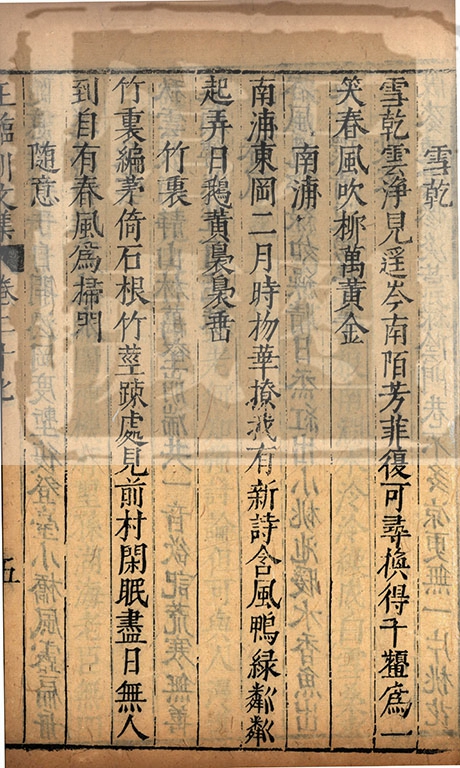 雪乾
雪乾雲淨見遥岑南陌芳菲復可尋換得千顰爲一
笑春風吹栁萬黄金
南浦
南浦東岡二月時物華撩我有新詩含風鴨緑粼粼
起弄日鵝黄裊裊垂
竹裏
竹裏編茅倚石根竹莖疎處見前村閑眠盡日無人
到自有春風爲掃門
隨意
王臨川文集 卷二十七 五